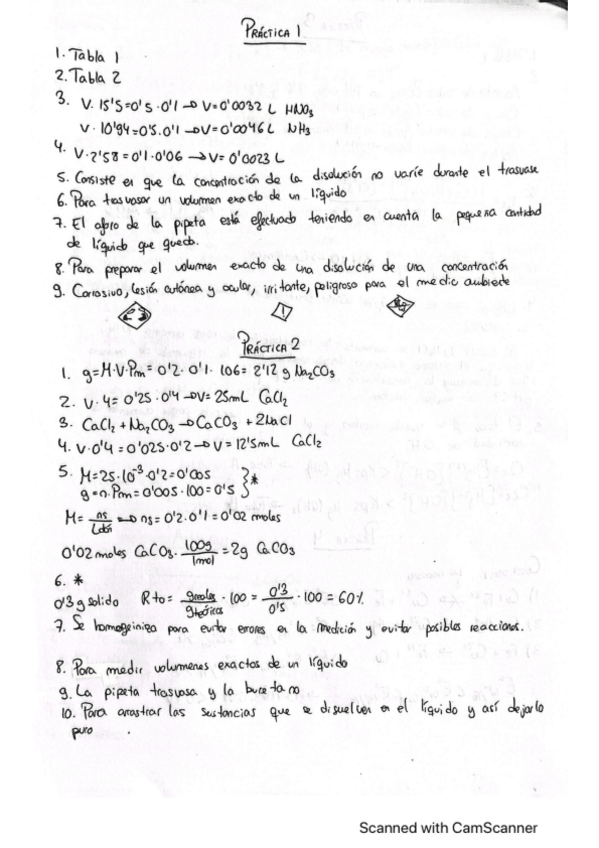 PRÁCTICA 1
1. Tabla 1
2. Tabla 2
3. V. 15'5=0'5 · 0'1 → V=0'0032 L HNO3
V · 10'94=0'5 · 0'1 → V=0'0046 L NH3
4. V·2'58=0'1·0'06 → V=0'0023 L
5. Consiste en que la concentración de la disolución no varíe durante el trasvase
6. Para trasvasar un volumen exacto de un líquido
7. El aforo de la pipeta está efectuado teniendo en cuenta la pequeña cantidad
de líquido que queda.
8. Para preparar el volumen exacto de una disolución de una concentración
9. Corrosivo, lesión cutánea y ocular, irritante, peligroso para el medio ambiente
PRÁCTICA 2
1. g=M·V·Pm=0'2·0'1·106=2'12 g Na2CO3
2. V·4=0'25·0'4 → V=25mL CaCl2
3. CaCl2+Na2CO3 → CaCO3 + 2NaCl
4. V·0'4=0'025·0'2 → V=12'5mL CaCl2
5. M=25·10-3·0'2=0'005
g=n·Pm=0'005·100=0'5 } *
M= ns/Ldón → ns=0'2·0'1=0'02 moles
0'02 moles CaCO3· 100g/1mol =2g CaCO3
6. *
0'3 g solido Rto= greales/gteóricos ·100= 0'3/0'5 ·100=60%
7. Se homogeiniza para evitar errores en la medición y evitar posibles reacciones.
8. Para medir volumenes exactos de un líquido
9. La pipeta trasvasa y la bureta no
10. Para arrastrar las sustancias que se disuelven en el líquido y así dejarlo
puro.
Scanned with CamScanner